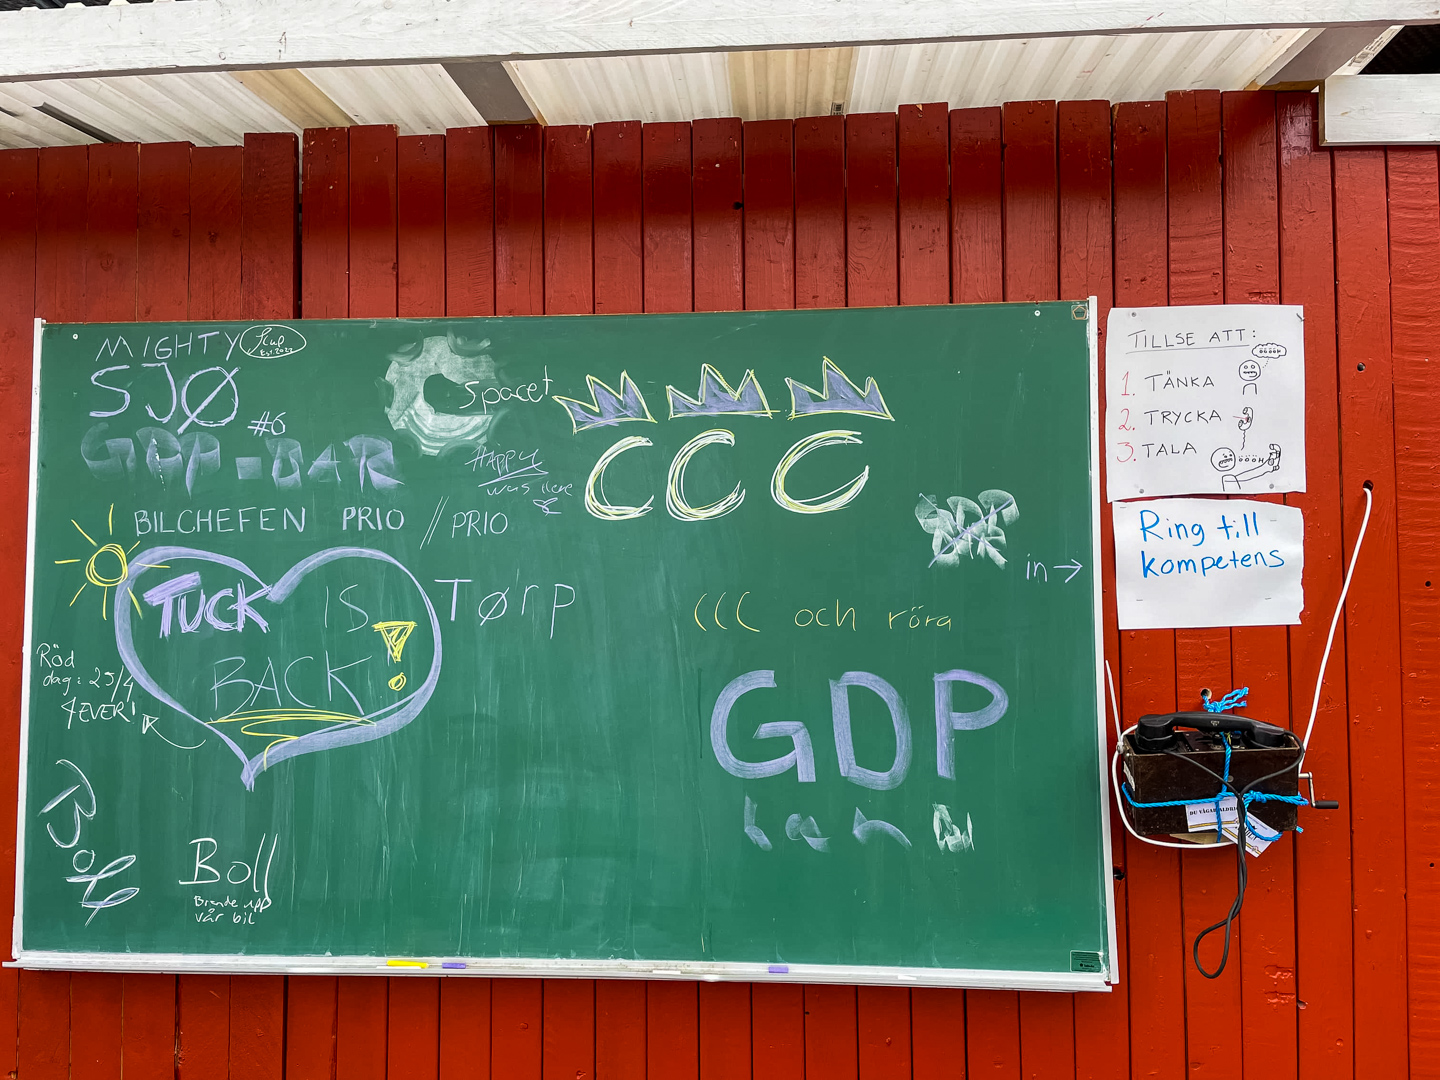 MIGHTY
Est. 2022
SJØ
#6
GDP-BAR
BILCHEFEN PRIO // PRIO
TUCK IS
BACK!
Röd
dag: 25/4
4EVER!
Boll
Boll
Brände upp
vår bil
Spacet
HAPPY
was here
CCC
Tørp
in →
CCC och röra
GDP
TILLSE ATT:
1. TÄNKA
2. TRYCKA
3. TALA
Ring till
kompetens
DU VÅGAR ALDRIG